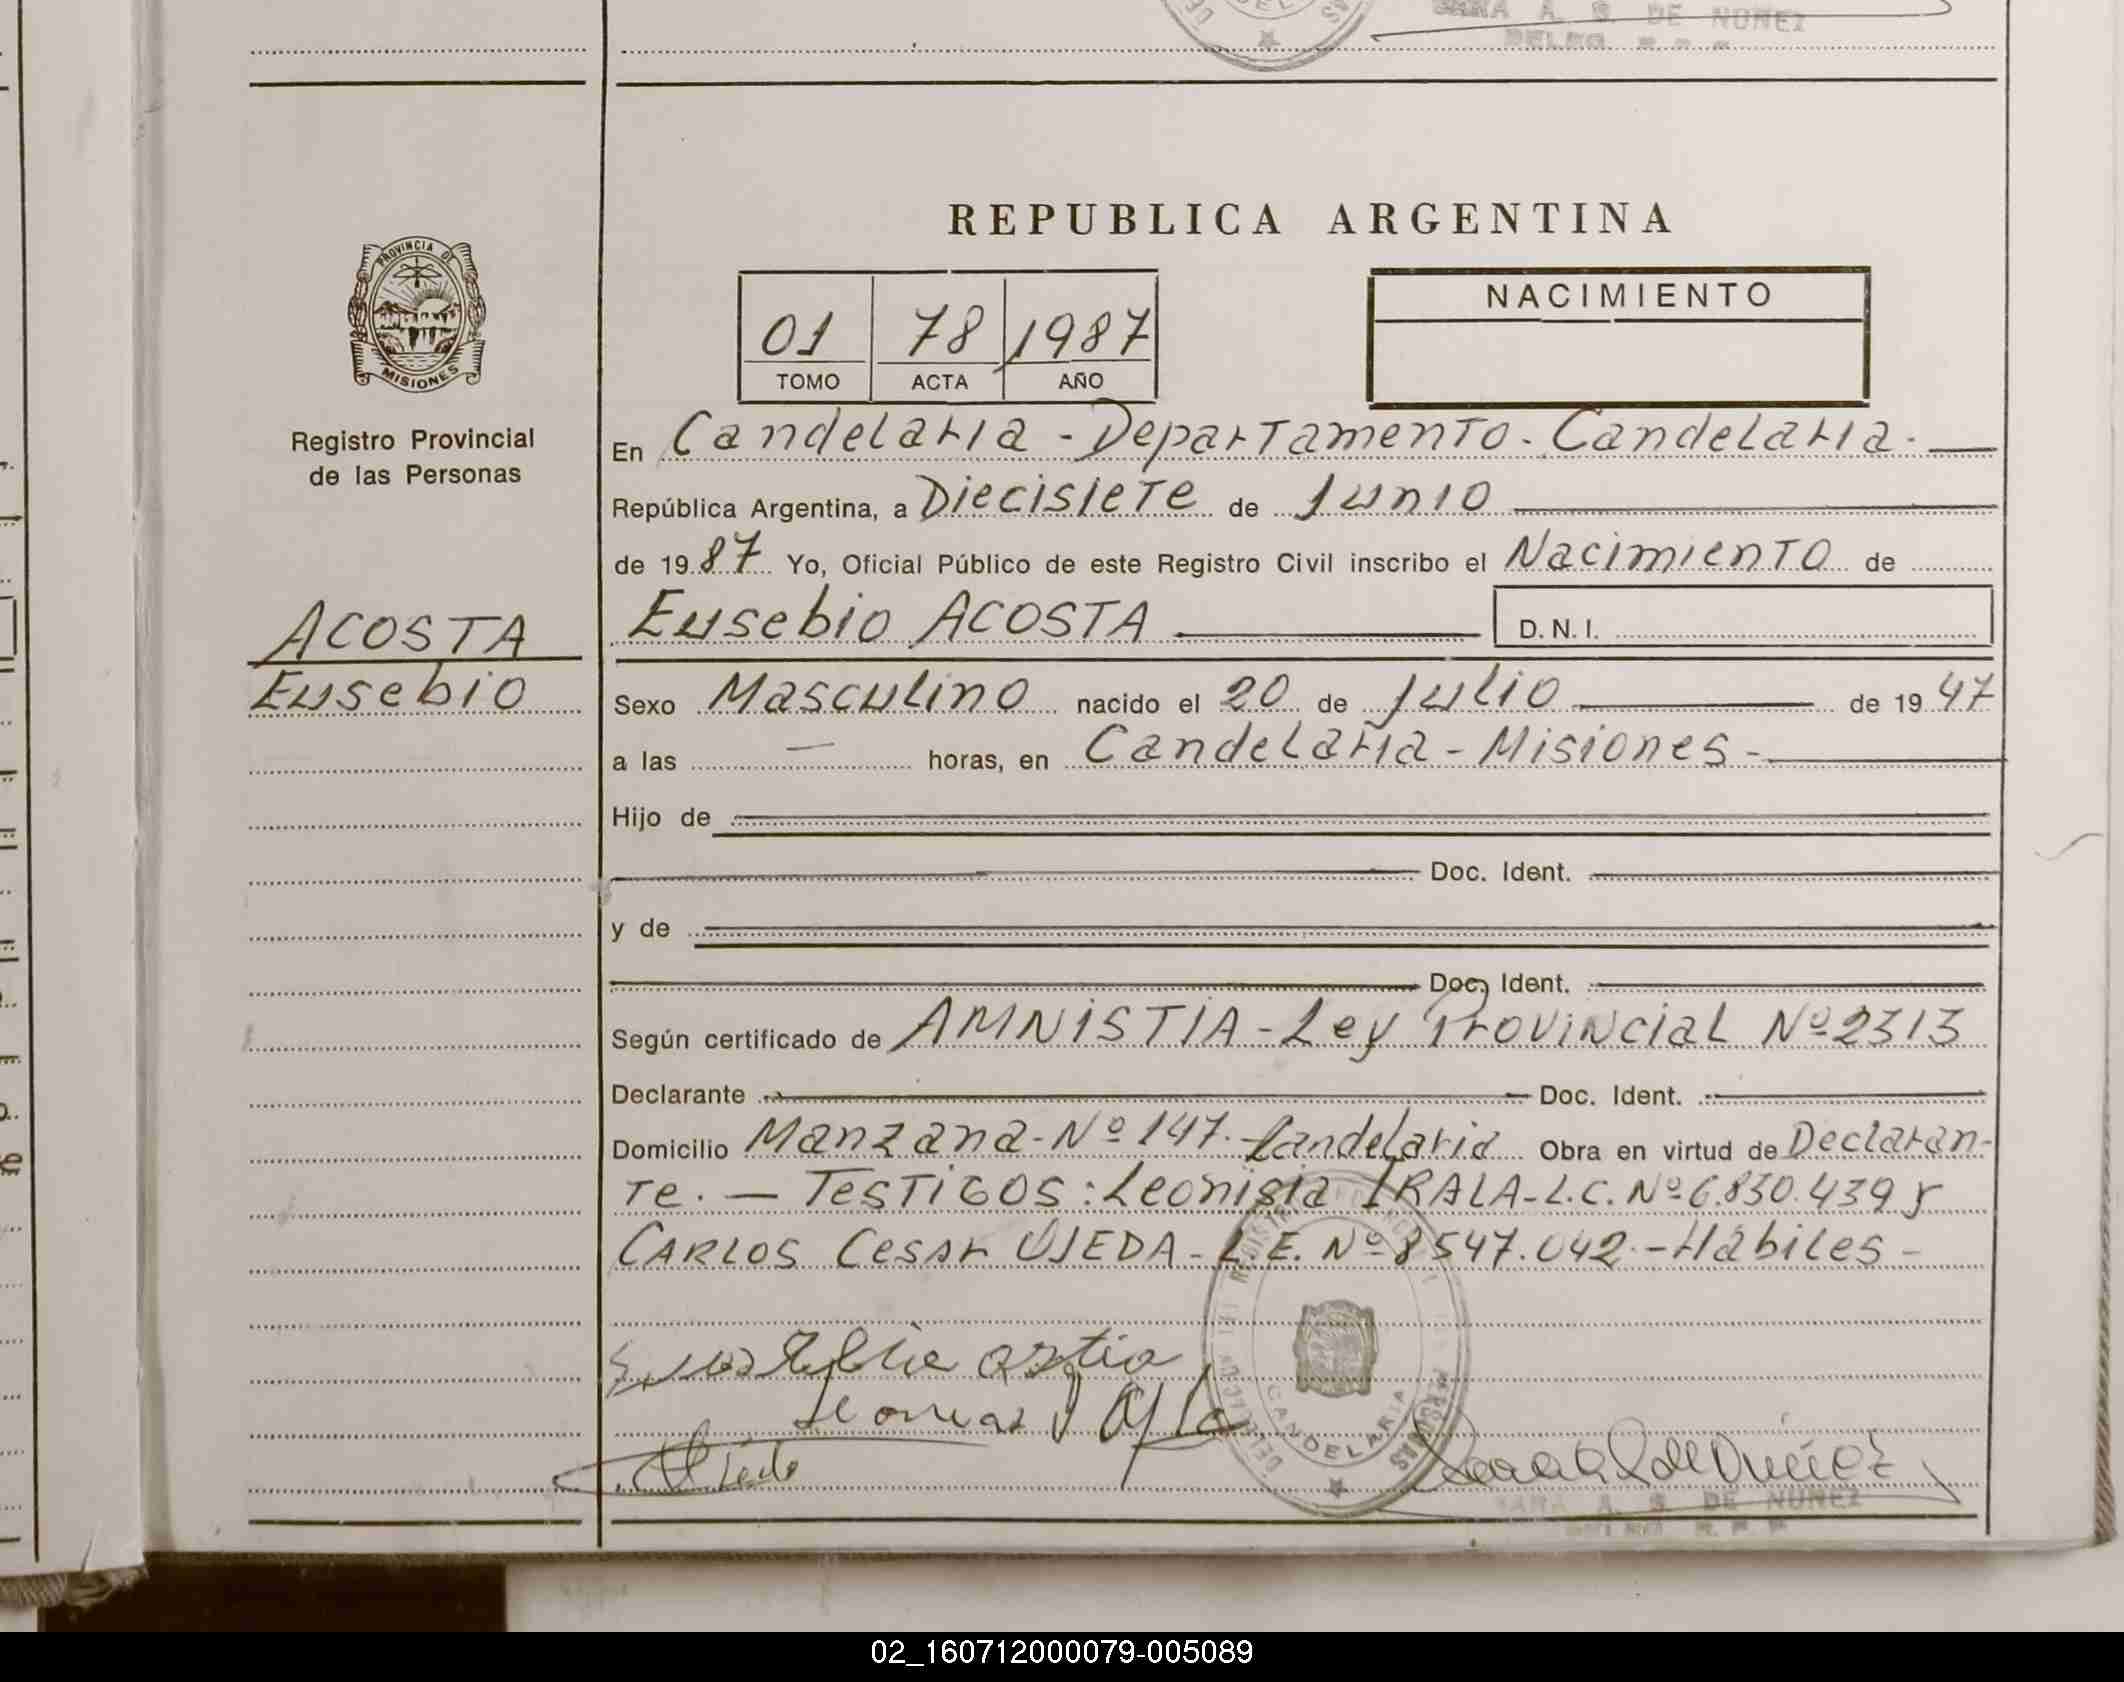 SARA A. S. DE NUÑEZ
REPUBLICA ARGENTINA
PROVINCIA DE
MISIONES
Registro Provincial
de las Personas
01 78 1987
TOMO ACTA AÑO
NACIMIENTO
En Candelaria - Departamento - Candelaria.
República Argentina, a Diecisiete de Junio
de 1987 Yo, Oficial Público de este Registro Civil inscribo el Nacimiento de
ACOSTA
Eusebio
Eusebio ACOSTA D.N.I.
Sexo Masculino nacido el 20 de Julio de 1947
a las — horas, en Candelaria - Misiones -
Hijo de
Doc. Ident.
y de
Doc. Ident.
Según certificado de AMNISTIA - Ley Provincial Nº 2313
Declarante Doc. Ident.
Domicilio Manzana - Nº 147. - Candelaria Obra en virtud de Declaran-
te. — TESTIGOS: Leonisia IRALA - L.C. Nº 6.830.439 y
CARLOS CESAR OJEDA - L.E. Nº 8547.042 - Hábiles -
CANDELARIA
SARA A. S. DE NUÑEZ
02_160712000079-005089